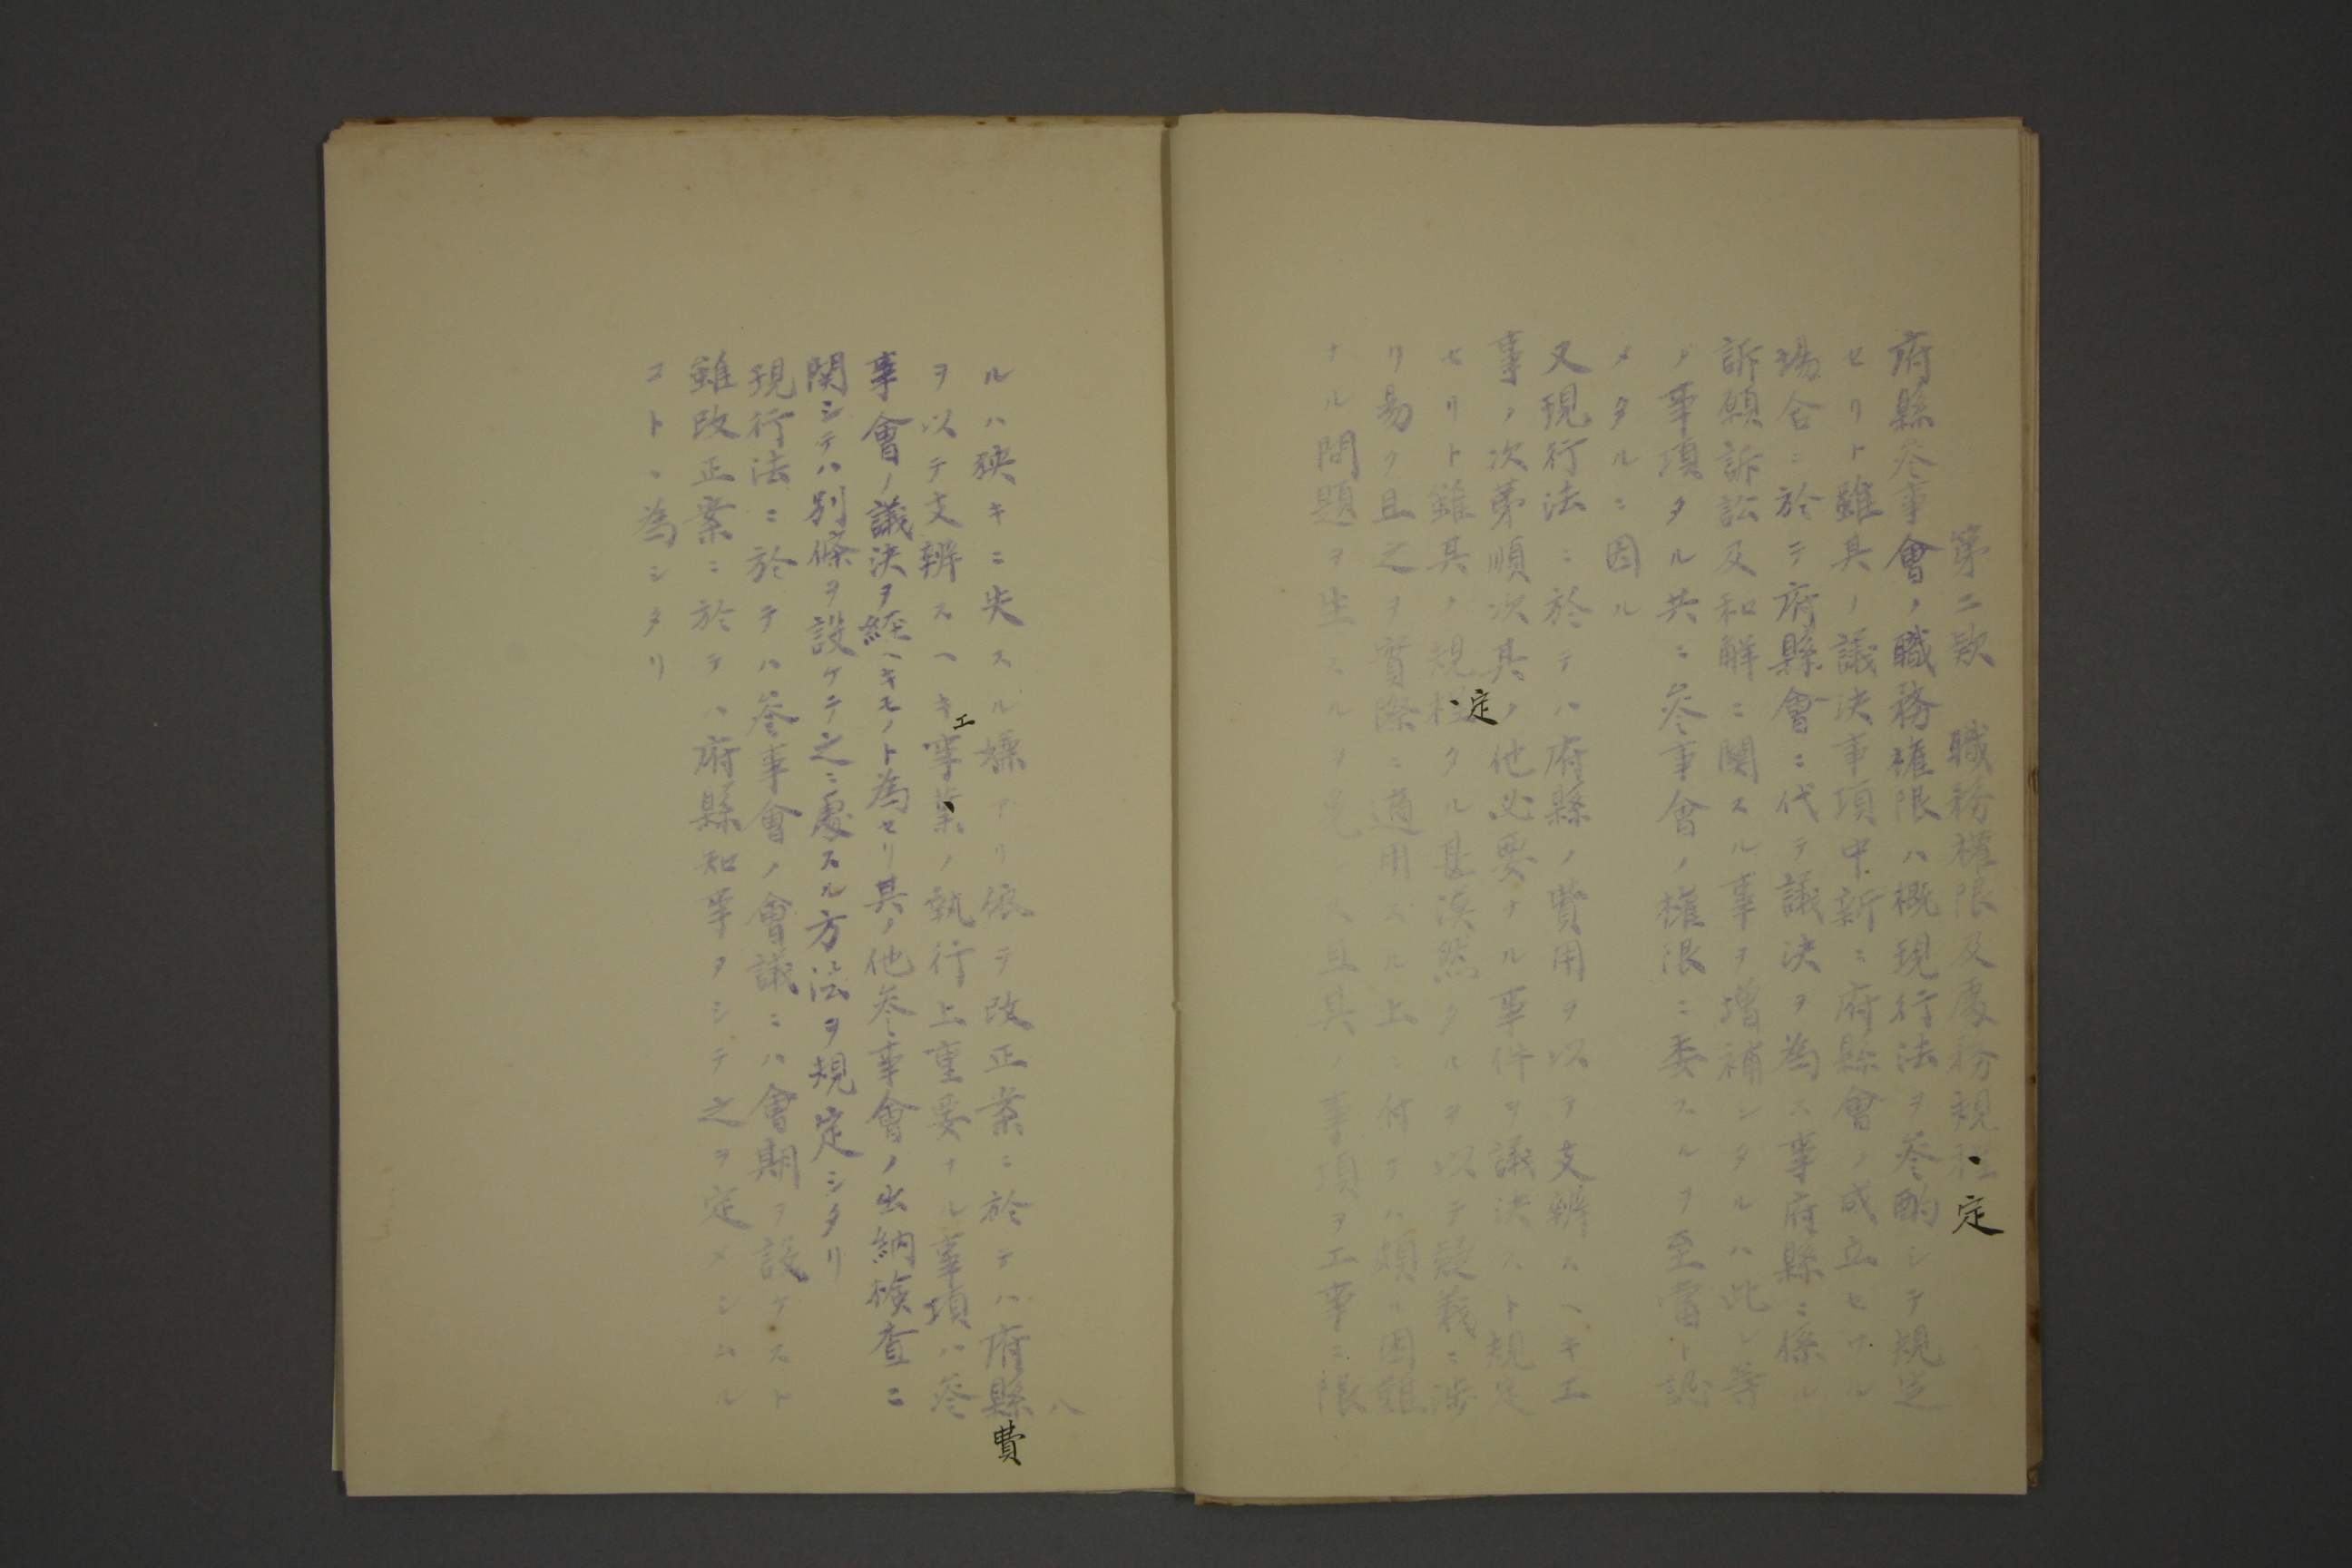 第二款　職務權限及處務規程定
府縣參事會ノ職務權限ハ概現行法ヲ參酌シテ規定
セリト雖其ノ議決事項中新ニ府縣會ノ成立セサル
場合ニ於テ府縣會ニ代テ議決ヲ為ス事府縣ニ係ル
訴願訴訟及和解ニ関スル事ヲ增補シタルハ此レ等
ノ事項タル共ニ參事會ノ權限ニ委スルヲ至當ト認
メタルニ因ル
又現行法ニ於テハ府縣ノ費用ヲ以テ支辨スヘキ工
事ノ次第順次其ノ他必要ナル事件ヲ議決スト規定
セリト雖其ノ規程定タル甚漠然タルヲ以テ疑義ニ涉
リ易ク且之ヲ實際ニ適用スル上ニ付テハ頗ル困難
ナル問題ヲ生スルヲ免レス且其ノ事項ヲ工事ニ限
ルハ狹キニ失スル嫌アリ依テ改正案ニ於テハ府縣費
ヲ以テ支辨スヘキ工事業ノ執行上重要ナル事項ハ參
事會ノ議決ヲ經ヘキモノト為セリ其ノ他參事會ノ出納検査ニ
関シテハ別條ヲ設ケテ之ニ處スル方法ヲ規定シタリ
現行法ニ於テハ參事會ノ會議ニハ會期ヲ設ケスト
雖改正案ニ於テハ府縣知事ヲシテ之ヲ定メシムル
コトヽ為シタリ
八